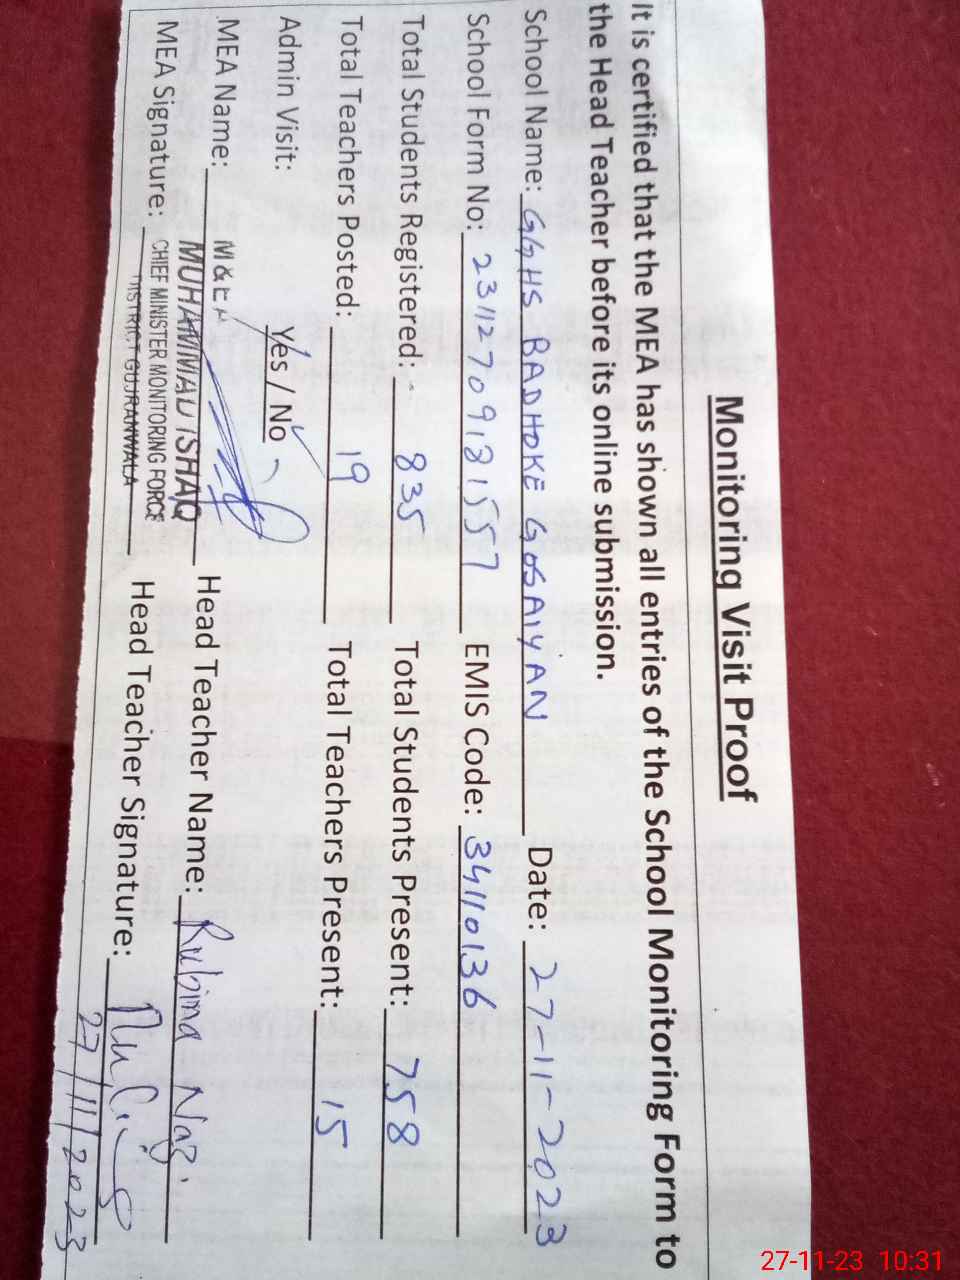 Monitoring Visit Proof
It is certified that the MEA has shown all entries of the School Monitoring Form to
the Head Teacher before its online submission.
School Name: GGHS BADHOKE GOSAIYAN Date: 27-11-2023
School Form No: 2311270918157 EMIS Code: 34110136
Total Students Registered: 835 Total Students Present: 758
Total Teachers Posted: 19 Total Teachers Present: 15
Admin Visit: Yes / No
MEA Name: MUHAMMAD ISHAQ Head Teacher Name: Rubina Naz
MEA Signature: CHIEF MINISTER MONITORING FORCE Head Teacher Signature:
DISTRICT GUJRANWALA
27/11/2023
27-11-23 10:31